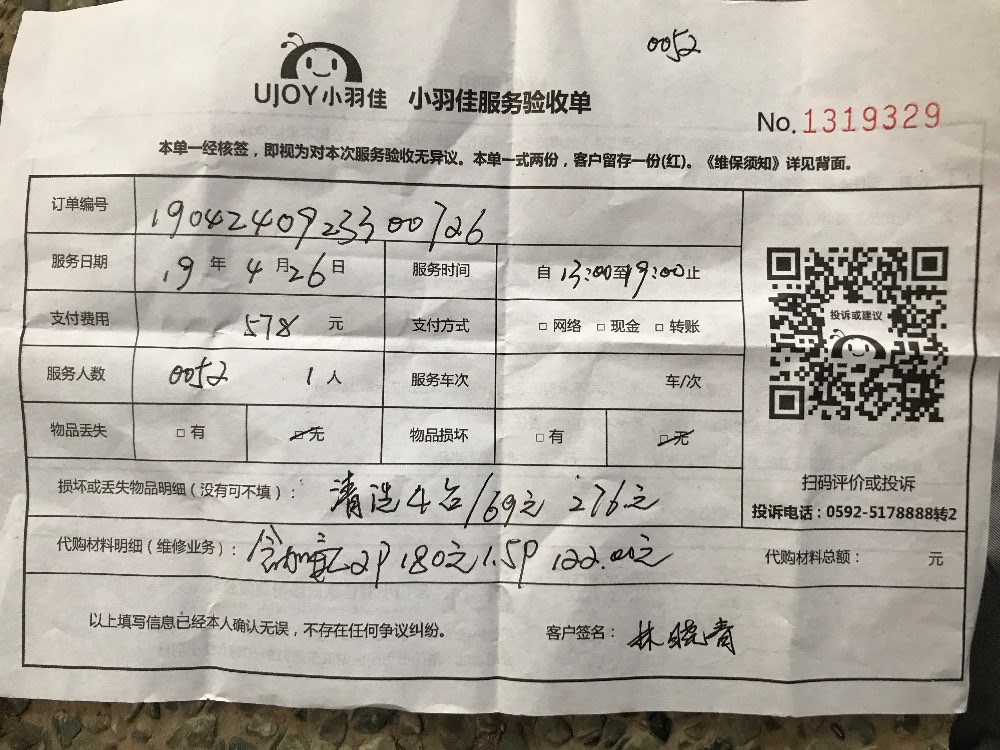 0052
UJOY小羽佳 小羽佳服务验收单
No.1319329
本单一经核签，即视为对本次服务验收无异议。本单一式两份，客户留存一份(红)。《维保须知》详见背面。
订单编号 1904240923300726
服务日期 19年4月26日 服务时间 自13:00至19:00止
支付费用 578元 支付方式 □网络 □现金 □转账
投诉或建议
服务人数 0052 1人 服务车次 车/次
物品丢失 □有 □无 物品损坏 □有 □无
扫码评价或投诉
投诉电话：0592-5178888转2
损坏或丢失物品明细（没有可不填）： 清洗4台/69元 276元
代购材料明细（维修业务）： 2P 180元 1.5P 122.00元 代购材料总额： 元
以上填写信息已经本人确认无误，不存在任何争议纠纷。 客户签名： 林晓青